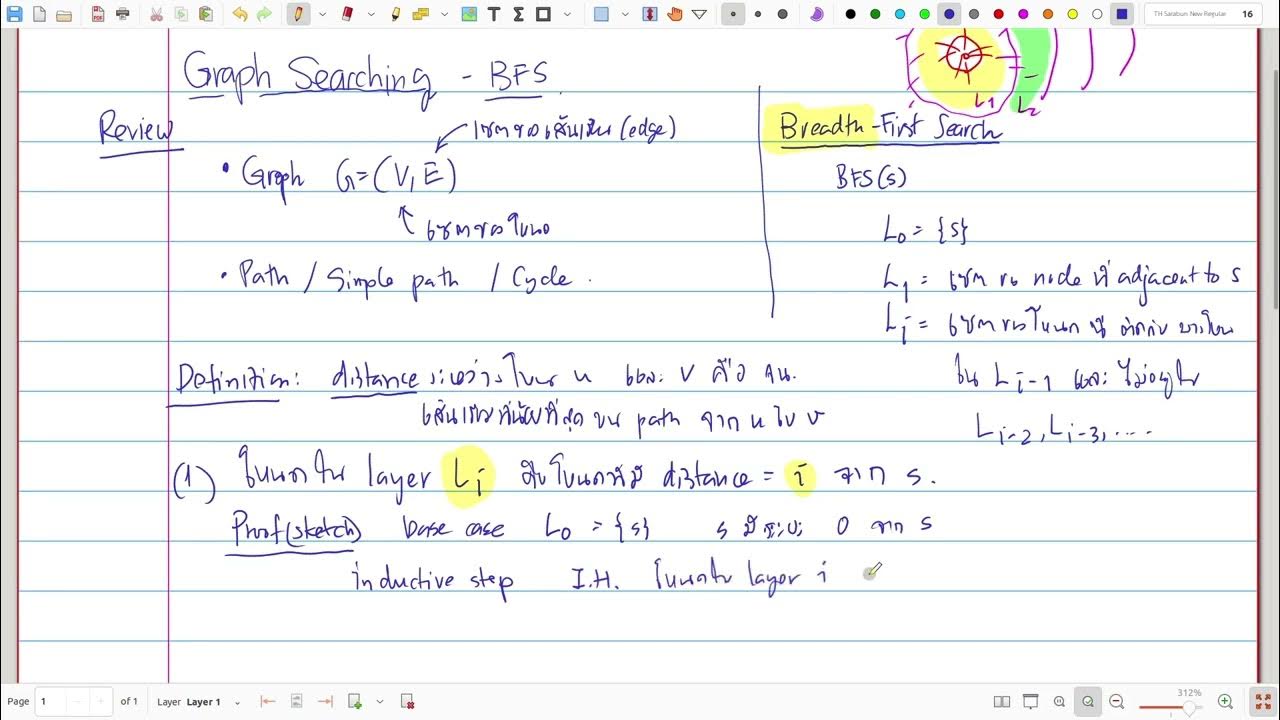 TH Sarabun New Regular 16
Graph Searching - BFS
Review
เซตของเส้นเชื่อม (edge)
• Graph G=(V,E)
เซตของโหนด
• Path / Simple path / Cycle.
L1
L2
Breadth-First Search
BFS(s)
L0 = {s}
L1 = เซตของ node ที่ adjacent to s
Li = เซตของโหนด ที่ ติดกับ
ใน Li-1 และ ไม่อยู่ใน
Li-2, Li-3, ....
Definition: distance ระหว่างโหนด u และ v คือ จน.
เส้นเชื่อมที่น้อยที่สุด บน path จาก u ไป v
(1) โหนดใน layer Li เป็นโหนดที่มี distance = i จาก s.
Proof(sketch) base case L0 = {s} s มีระยะ 0 จาก s
inductive step I.H. โหนดใน layer i
Page 1 of 1 Layer Layer 1 312%